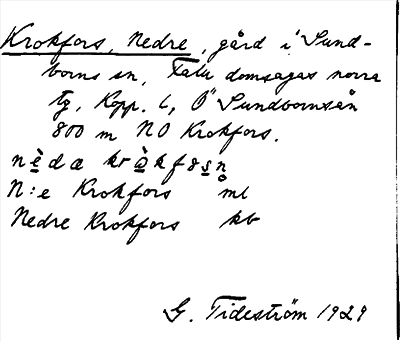 Krokfors, Nedre, gård i Sund-
borns sn, Falu domsagas norra
tg, Kopp. l, Ö Sundbornsån
800 m NO Krokfors.
nèdæ kròkfosn
N:e Krokfors ml
Nedre Krokfors kb
G. Tideström 1929